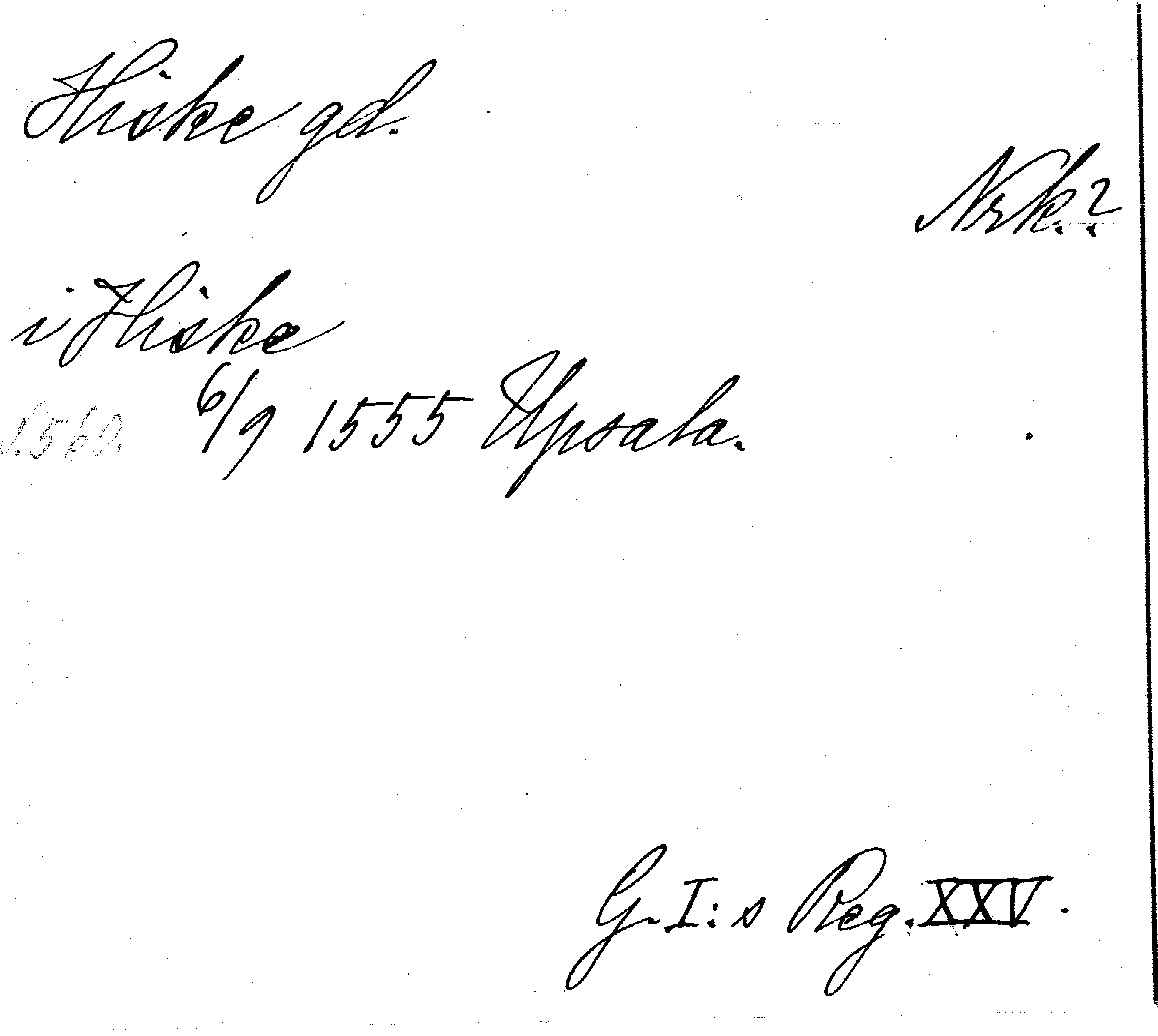 Hiske gd.
Nrk.?
i Hiske
1560. 6/9 1555 Upsala.
G. I:s Reg. XXV.